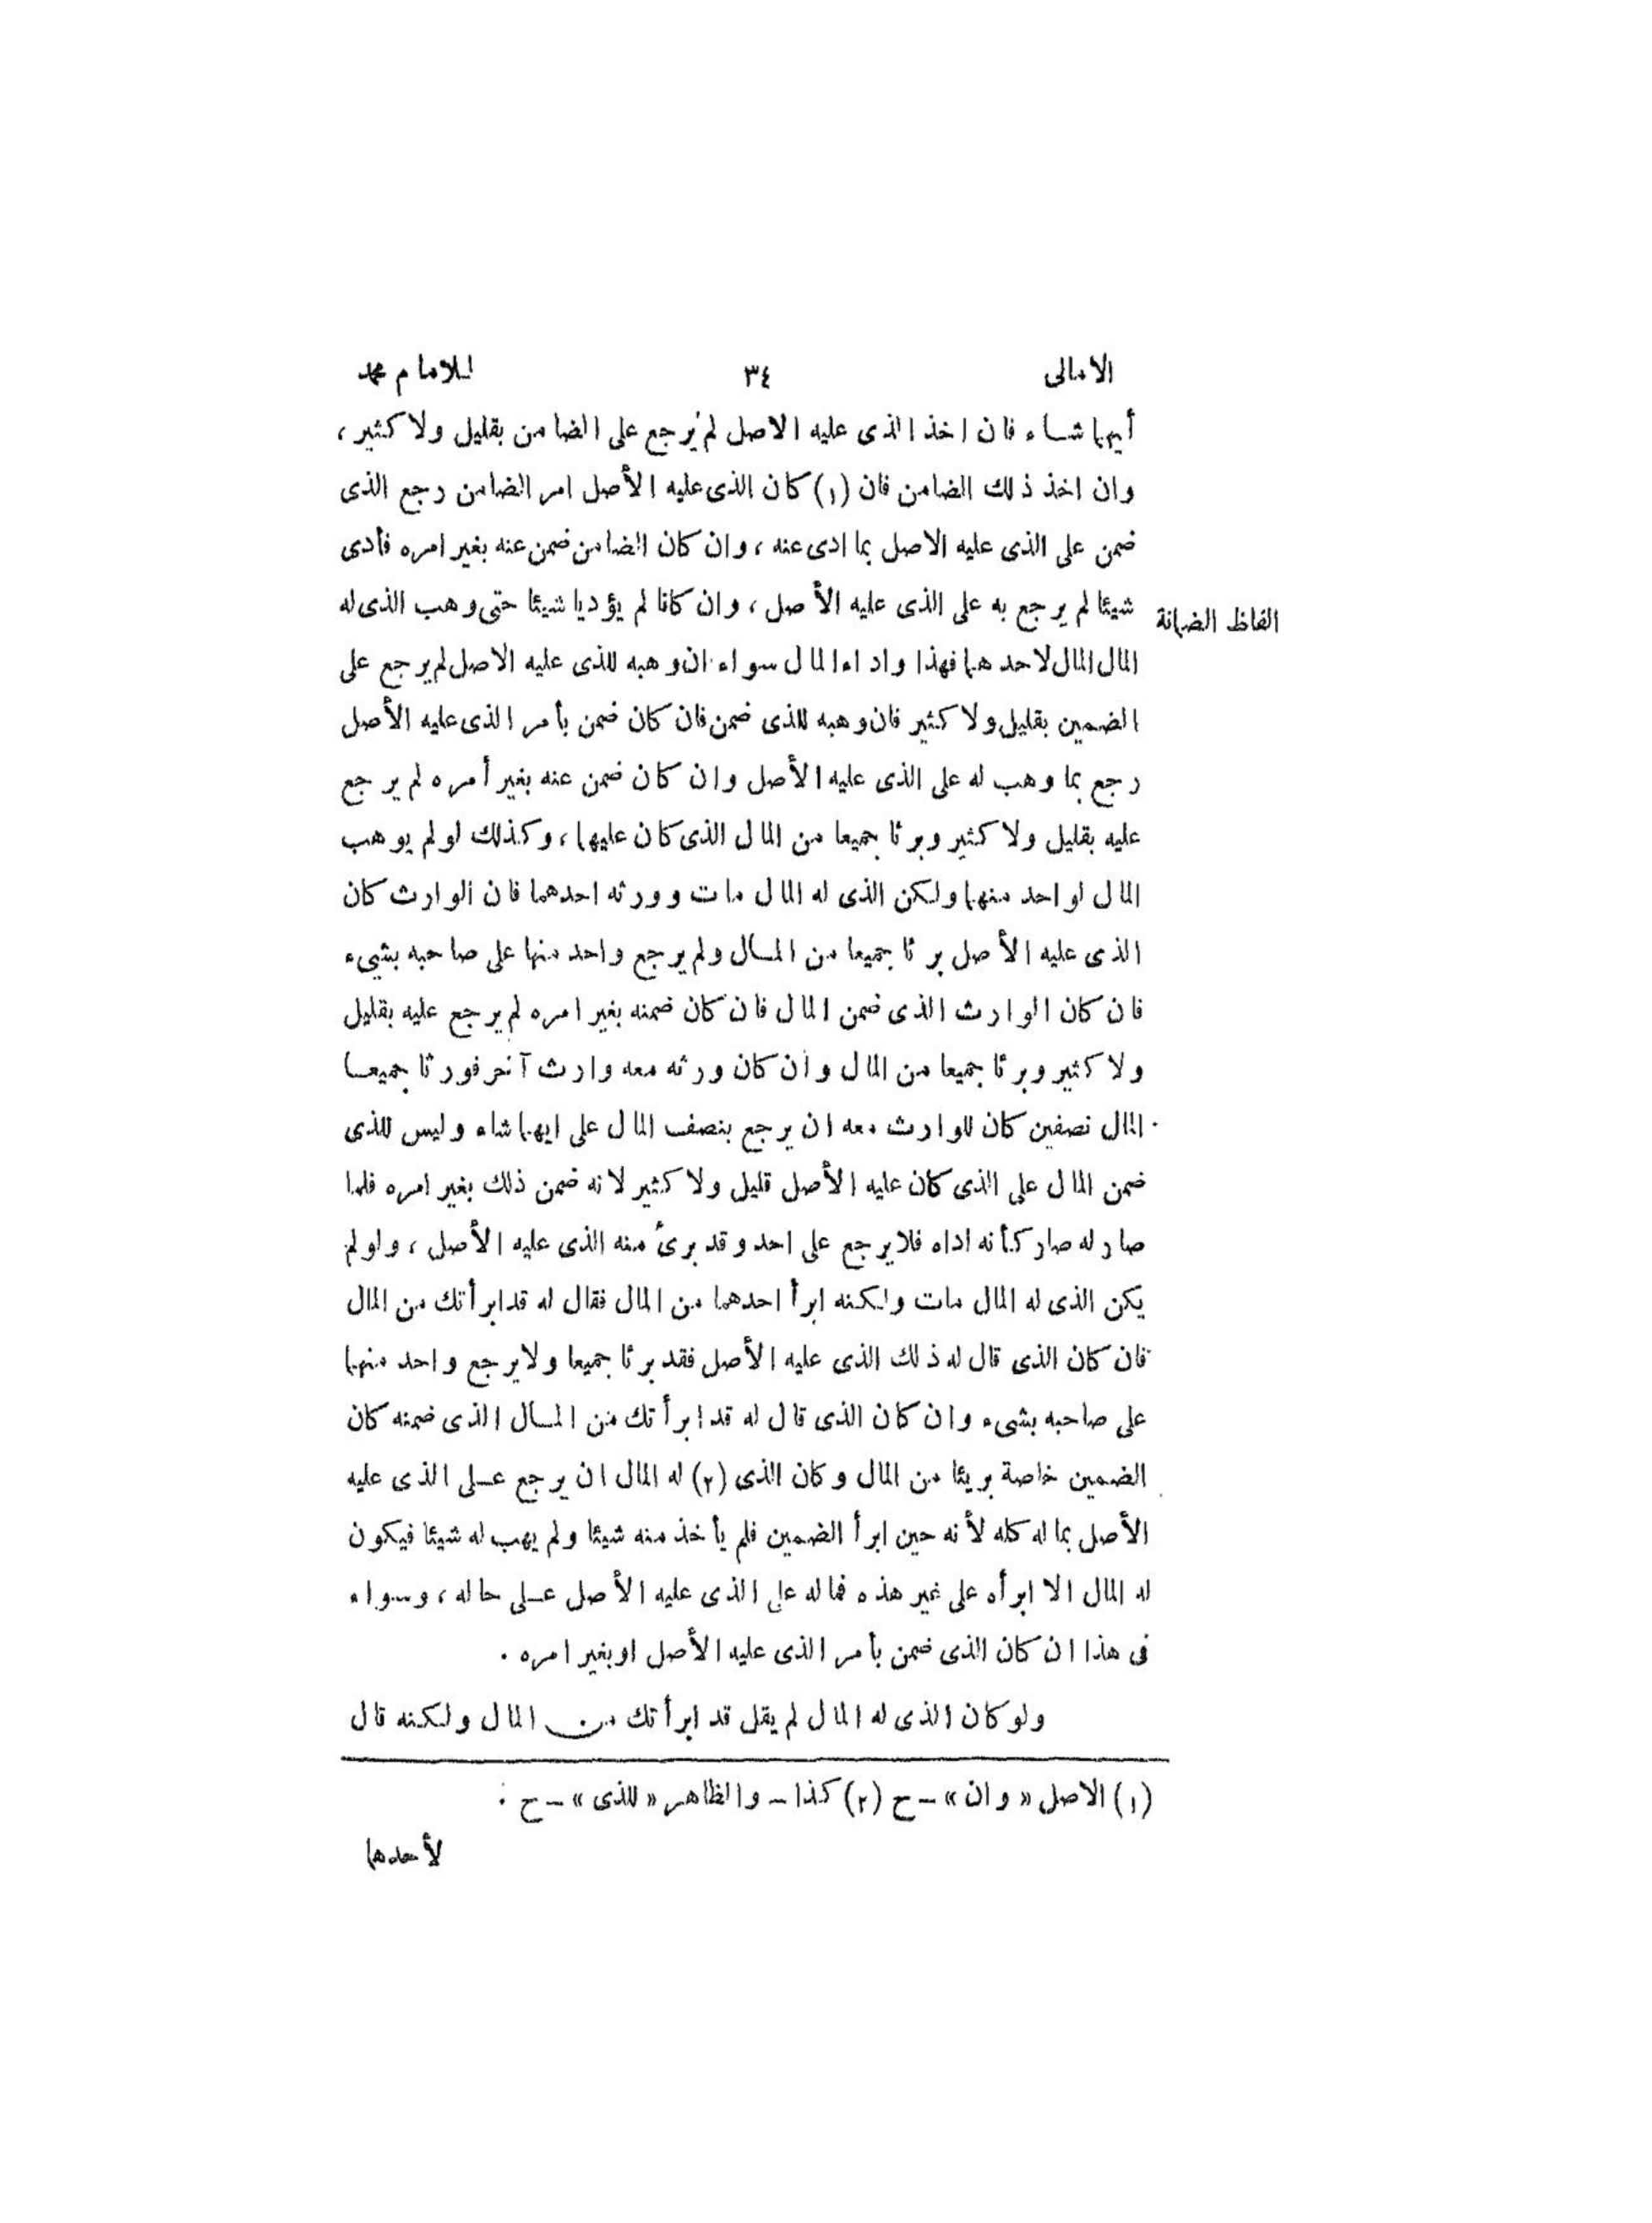 الامالى ٣٤ للامام محمد
أيهما شاء فان اخذ الذى عليه الاصل لم يرجع على الضامن بقليل ولا كثير ،
وان اخذ ذلك الضامن فان (١) كان الذى عليه الأصل امر الضامن رجع الذى
ضمن على الذى عليه الاصل بما ادى عنه ، وان كان الضامن ضمن عنه بغير امره فأدى
شيئا لم يرجع به على الذى عليه الأصل ، وان كانا لم يؤديا شيئا حتى وهب الذى له
الفاظ الضمانة
المال المال لاحدهما فهذا واداء المال سواء ان وهبه للذى عليه الاصل لم يرجع على
الضمين بقليل ولا كثير فان وهبه للذى ضمن فان كان ضمن بأمر الذى عليه الأصل
رجع بما وهب له على الذى عليه الأصل وان كان ضمن عنه بغير أمره لم يرجع
عليه بقليل ولا كثير وبرئا جميعا من المال الذى كان عليهما ، وكذلك لو لم يوهب
المال لواحد منهما ولكن الذى له المال مات وورثه احدهما فان الوارث كان
الذى عليه الأصل برئا جميعا من المال ولم يرجع واحد منهما على صاحبه بشىء
فان كان الوارث الذى ضمن المال فان كان ضمنه بغير امره لم يرجع عليه بقليل
ولا كثير وبرئا جميعا من المال وان كان ورثه معه وارث آخر فورثا جميعا
المال نصفين كان للوارث معه ان يرجع بنصف المال على ايهما شاء وليس للذى
ضمن المال على الذى كان عليه الأصل قليل ولا كثير لانه ضمن ذلك بغير امره فلما
صار له صار كأنه اداه فلا يرجع على احد وقد برئ منه الذى عليه الأصل ، ولو لم
يكن الذى له المال مات ولكنه ابرأ احدهما من المال فقال له قد ابرأتك من المال
فان كان الذى قال له ذلك الذى عليه الأصل فقد برئا جميعا ولا يرجع واحد منهما
على صاحبه بشىء وان كان الذى قال له قد ابرأتك من المال الذى ضمنه كان
الضمين خاصة بريئا من المال وكان الذى (٢) له المال ان يرجع على الذى عليه
الأصل بماله كله لأنه حين ابرأ الضمين فلم يأخذ منه شيئا ولم يهب له شيئا فيكون
له المال الا ابرأه على غير هذه فماله على الذى عليه الأصل على حاله ، وسواء
فى هذا ان كان الذى ضمن بأمر الذى عليه الأصل او بغير امره .
ولو كان الذى له المال لم يقل قد ابرأتك من المال ولكنه قال
(١) الاصل « وان » – ح (٢) كذا – والظاهر « للذى » – ح .
لأحدهما